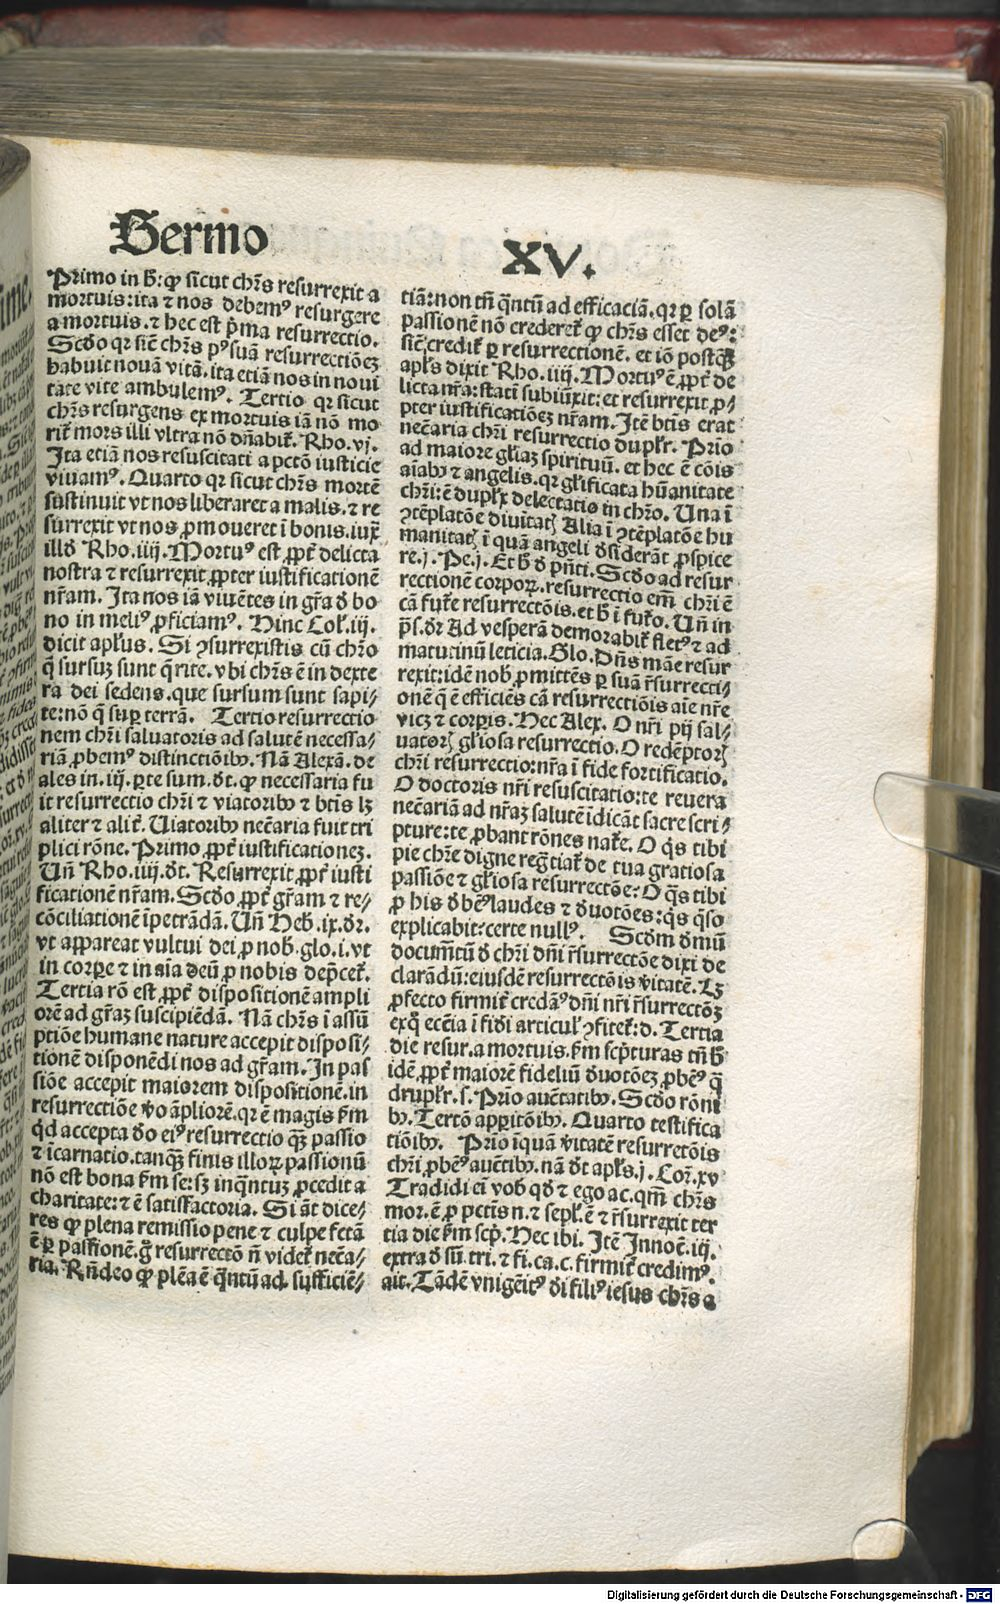 Sermo
XV.
Primo in hͦ: ꝙ sicut chr̃s resurrexit a
mortuis: ita ⁊ nos debemꝰ resurgere
a mortuis. ⁊ hec est p̃ma resurrectio.
Scd̃o qꝛ sic̃ chr̃s pꝰ suã resurrectiõeꝫ
habuit nouã vitã. ita etiã nos in noui
tate vite ambulemꝰ. Tertio qꝛ sicut
chr̃s resurgens ex mortuis iã nõ mo
rit᷑ mors illi vltra nõ dñabit᷑. Rho. vj.
Ita etiã nos resuscitati a pctõ iusticie
viuamꝰ. Quarto qꝛ sicut chr̃s mortẽ
sustinuit vt nos liberaret a malis. ⁊ re
surrexit vt nos ꝓmoueret ĩ bonis. iux̃
illd̓ Rho. iiij. Mortuꝰ est ꝓpt̃ delicta
nostra ⁊ resurrexit ꝓpter iustificationẽ
nr̃am. Ita nos iã viuẽtes in gr̃a d̓ bo
no in meliꝰ ꝓficiamꝰ. Hinc Col̓. iij.
dicit apl̓us. Si ꝯsurrexistis cũ chr̃o
q̃ sursuꝫ sunt q̃rite. vbi chr̃s ẽ in dexte
ra dei sedens. que sursum sunt sapi⸗
te: nõ q̃ suꝑ terrã. Tertio resurrectio
nem chr̃i saluatoris ad salutẽ necessa⸗
riã ꝓbemꝰ distinctiõibꝰ. Nã Alexã. de
ales in. iij. ꝑte sum. d̓t. ꝙ necessaria fu
it resurrectio chr̃i ⁊ viatoribꝰ ⁊ bt̃is lꝫ
aliter ⁊ alit̃. Uiatoribꝰ nec̃aria fuit tri
plici rõne. Primo ꝓpt̃ iustificationeꝫ.
Uñ Rho. iiij. d̓t. Resurrexit ꝓpt̃ iusti
ficationẽ nr̃am. Scd̃o ꝓpt̃ gr̃am ⁊ re⸗
cõciliationẽ ĩpetrãdã. Uñ Heb̓. ix. d̓r.
vt appareat vultui dei ꝓ nob̓. glo. i. vt
in corꝑe ⁊ in aĩa deũ ꝓ nobis dep̃cet᷑.
Tertia rõ est ꝓpt̃ dispositionẽ ampli
orẽ ad gr̃aꝫ suscipiẽdã. Nã chr̃s ĩ assũ
ptiõe humane nature accepit disposi⸗
tionẽ disponẽdi nos ad gr̃am. In pas
siõe accepit maiorem dispositionẽ. in
resurrectiõe v̓o ãpliorẽ. qꝛ ẽ magis ẜm
qd̓ accepta d̓o eiꝰ resurrectio q̃ꝫ passio
⁊ ĩcarnatio. tanq̃ꝫ finis illoꝝ passionũ
nõ est bona ẜm se: sꝫ inq̃ntuꝫ ꝓcedit a
charitate: ⁊ ẽ satisfactoria. Si ãt dice⸗
res ꝙ plena remissio pene ⁊ culpe fctã
ẽ ꝑ passionẽ. g̃ resurrectõ ñ videt᷑ nec̃a⸗
ria. Rñdeo ꝙ plẽa ẽ q̃ntũ ad sufficiẽ⸗
tiã: non tñ q̃ntũ ad efficaciã. qꝛ ꝑ solã
passionẽ nõ crederet᷑ ꝙ chr̃s esset deꝰ:
sic̃ credit᷑ ꝑ resurrectionẽ. et iõ postq̃ꝫ
apl̓s dixit Rho. iiij. Mortuꝰ ẽ ꝓpt̃ de
licta nr̃a: statĩ subiũxit: et resurrexit ꝓ⸗
pter iustificatiõeꝫ nr̃am. Itẽ bt̃is erat
nec̃aria chr̃i resurrectio dupl̓r. Prĩo
ad maiorẽ gl̓iaꝫ spirituũ. et hec ẽ cõis
aĩabꝰ ⁊ angelis. qꝛ gl̓ificata hũanitate
chr̃i: ẽ dupl̓x delectatio in chr̃o. Una ĩ
ꝯtẽplatõe diuĩtatꝭ Alia ĩ ꝯtẽplatõe hu
manitatꝭ ĩ quã angeli d̓siderãt ꝓspice
re. j. Pe. j. Et hͦ d̓ p̃ñti. Scd̃o ad resur
rectionẽ corpoꝝ. resurrectio em̃ chr̃i ẽ
cã fut᷑e resurrectõis. et hͦ ĩ fut᷑o. Uñ in
p̃s. d̓r Ad vesperã demorabit᷑ fletꝰ ⁊ ad
matutinũ leticia. Glo. Dñs mãe resur
rexit: idẽ nob̓ ꝓmittẽs ꝑ suã r̃surrecti⸗
onẽ q̃ ẽ efficiẽs cã resurrectiõis aĩe nr̃e
vicꝫ ⁊ corꝑis. Hec Alex. O nr̃i pij sal⸗
uatorꝭ gl̓iosa resurrectio. O redẽptorꝭ
chr̃i resurrectio: nr̃a ĩ fide fortificatio.
O doctoris nr̃i resuscitatio: te reuera
nec̃ariã ad nr̃aꝫ salutẽ ĩdicãt sacre scri⸗
pture: te ꝓbant rõnes nat᷑e. O q̃s tibi
pie chr̃e digne reg̃tiat᷑ de tua gratiosa
passiõe ⁊ gl̓iosa resurrectõe: O q̃s tibi
ꝓ his d̓bẽs laudes ⁊ d̓uotões: q̃s q̃so
explicabit: certe nullꝰ. Scd̃m d̓mũ
documẽtũ d̓ chr̃i dñi r̃surrectõe dixi de
clarãdũ: eiusdẽ resurrectõis v̓itatẽ. Lꝫ
ꝓfecto firmit᷑ credãꝰ dñi nr̃i r̃surrectõꝫ
exq̃ ecc̃ia ĩ fid̓i articul̓ ꝯfitet᷑: d. Tertia
die resur. a mortuis. ẜm sc̃pturas tñ hͦ
idẽ ꝓpt̃ maiorẽ fideliũ d̓uotõeꝫ ꝓbẽꝰ q̃
drupl̓r. s. Prĩo auc̃tatibꝰ. Scd̃o rõni
bꝰ. Tertõ apꝑitõibꝰ. Quarto testifica
tiõibꝰ. Prĩo ĩquã v̓itatẽ resurrectõis
chr̃i ꝓbẽꝰ auc̃tibꝰ. nã d̓t apl̓s. j. Cor̃. xv
Tradidi eĩ vob̓ qd̓ ⁊ ego ac. qm̃ chr̃s
mor. ẽ ꝓ pctĩs n. ⁊ sepl̓. ẽ ⁊ r̃surrexit ter
tia die ẜm scp̃. Hec ibi. Itẽ Innoc̃. iij.
extra d̓ sũ. tri. ⁊ fi. ca. c. firmit᷑ credimꝰ.
ait. Tãdẽ vnigẽitꝰ d̓i filiꝰ iesus chr̃s a
Digitalisierung gefördert durch die Deutsche Forschungsgemeinschaft - DFG